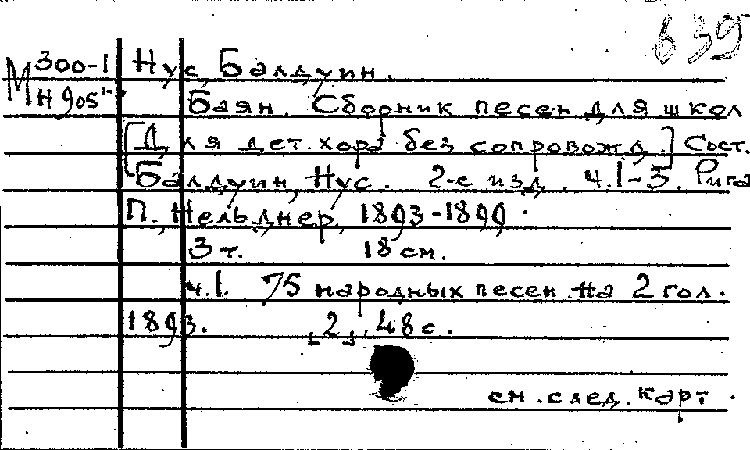 639
М 300-1 Нус, Балдуин.
Н 905
Баян. Сборник песен для школ
[Для дет. хора без сопровожд.] Сост.
Балдуин, Нус. 2-е изд. ч.1-3. Рига
П., Нельднер, 1893-1899.
3 т. 18 см.
ч.1. 75 народных песен на 2 гол.
1893. [2], 48 с.
см. след. карт.